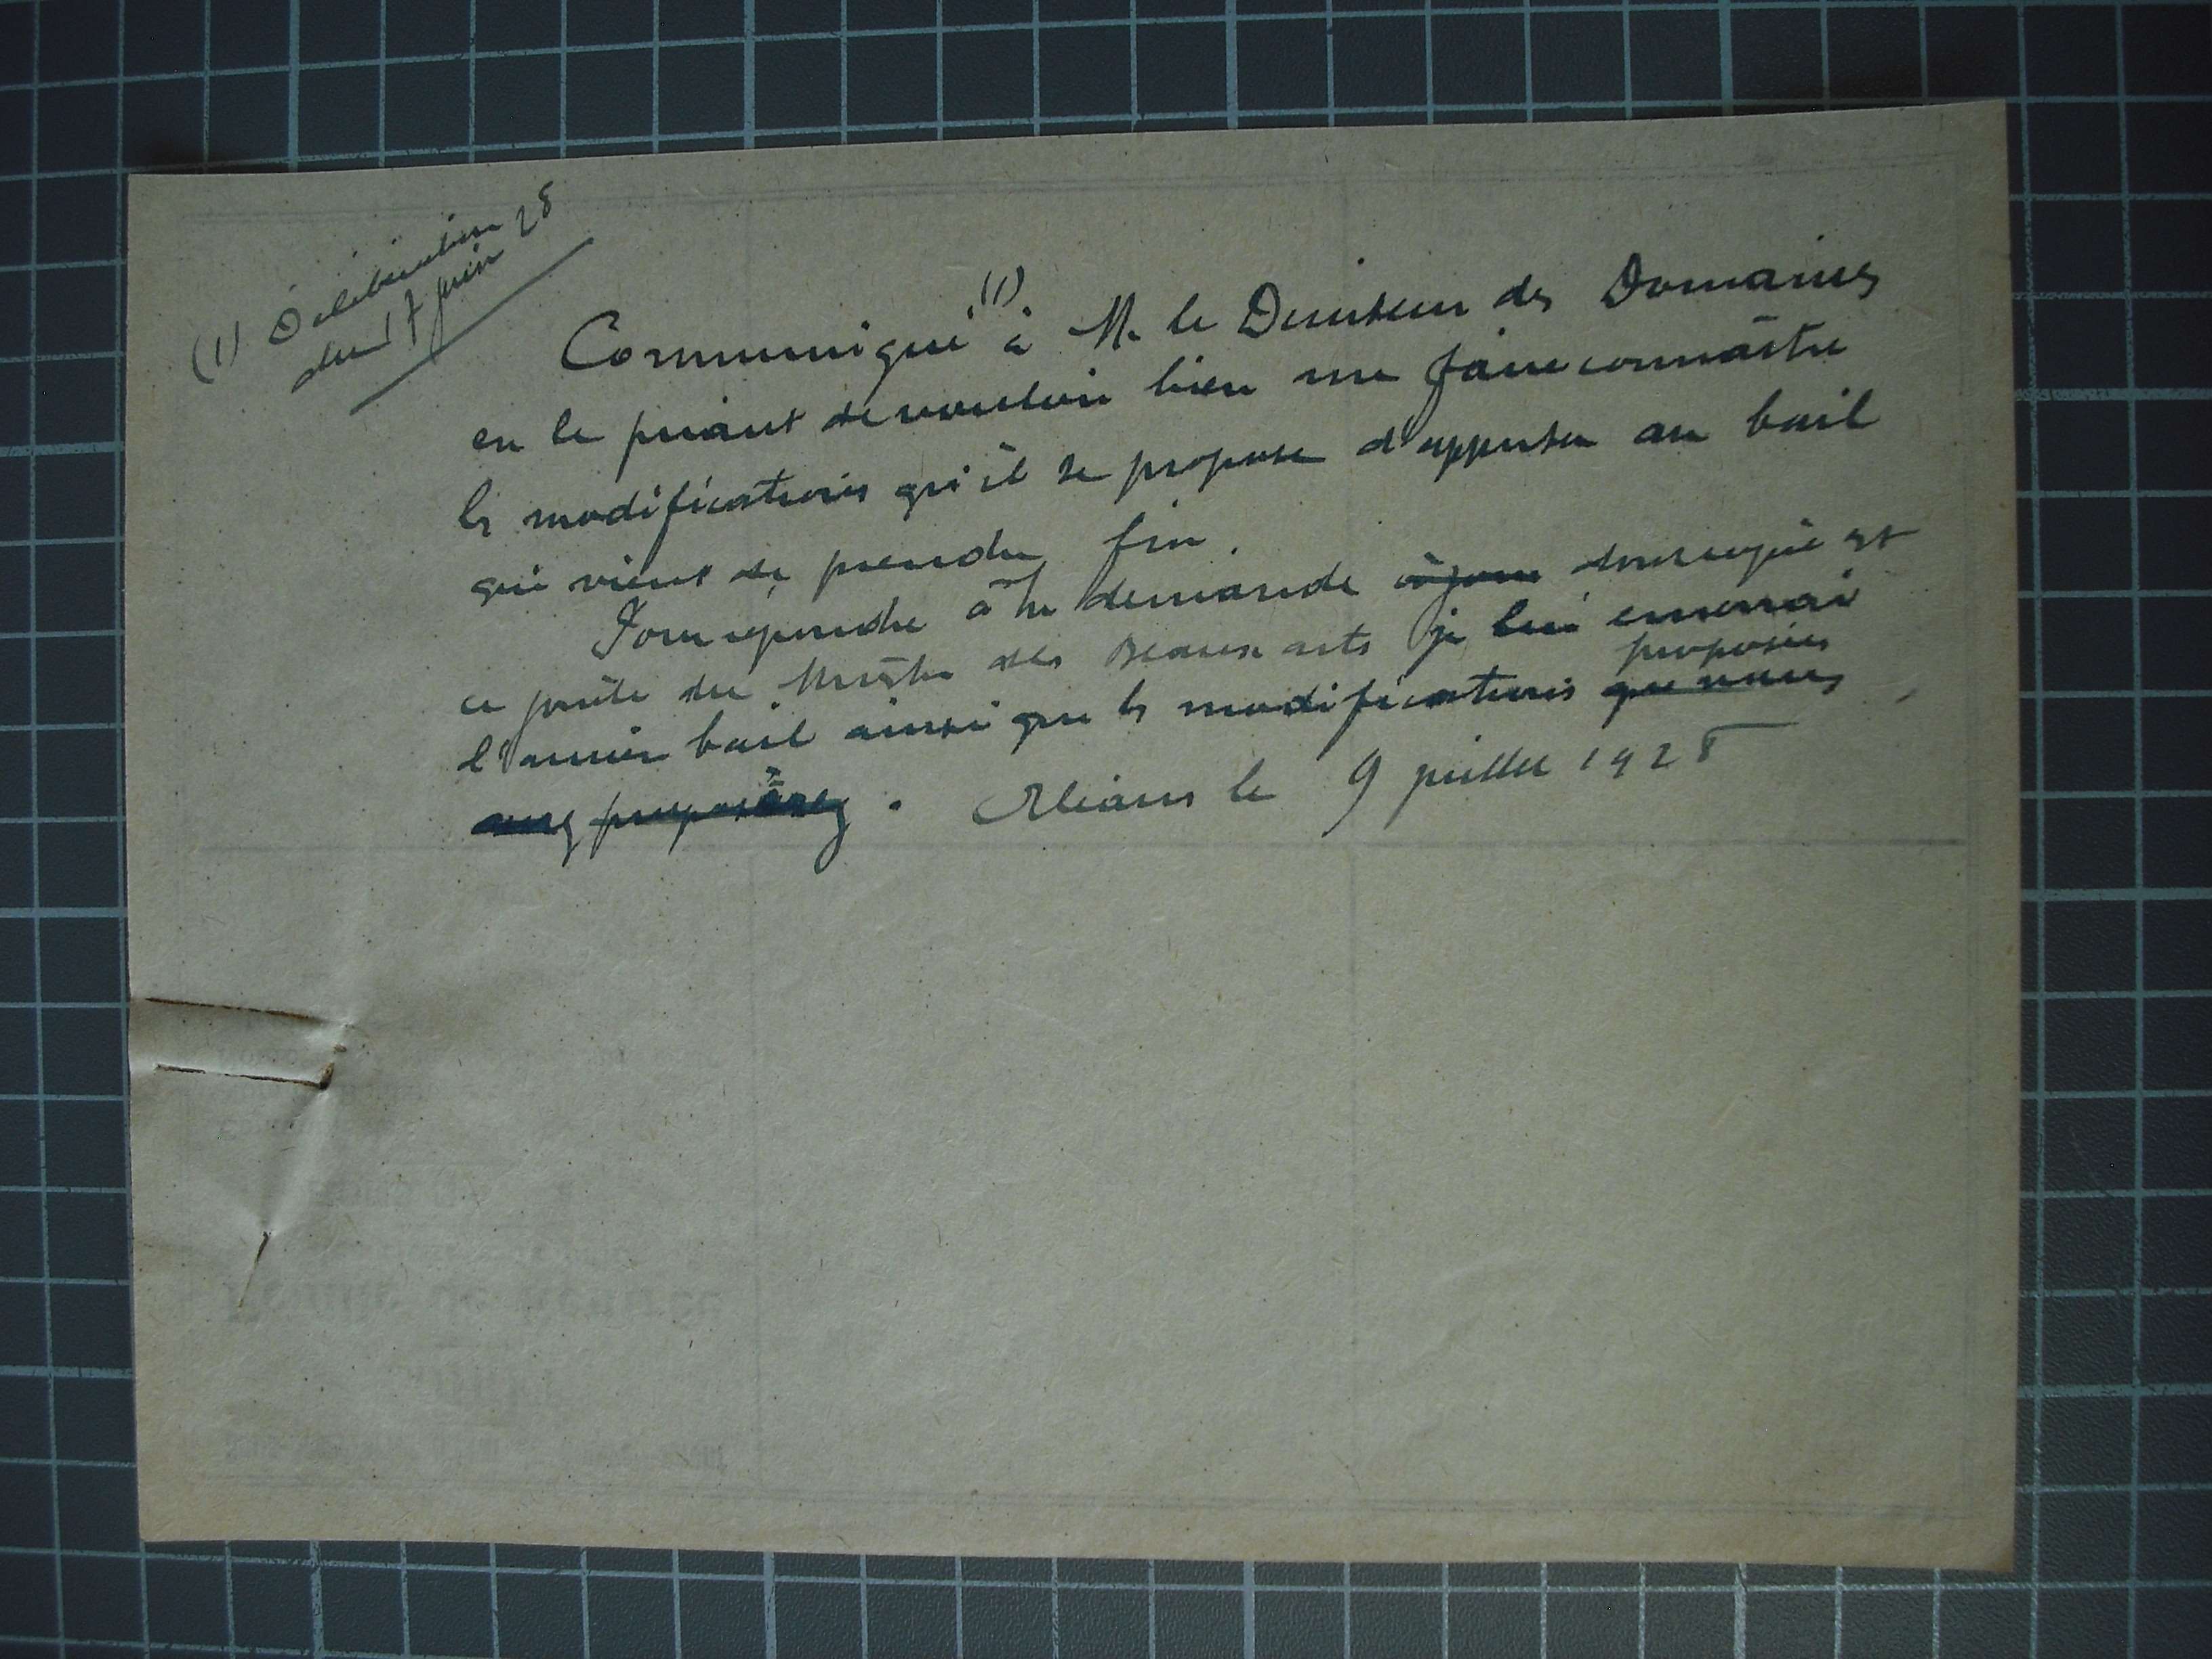 (1) Délibération
du 17 juin 28
Communiqué (1) à M. le Directeur des Domaines
en le priant de vouloir bien me faire connaître
les modifications qu'il se propose d'apporter au bail
qui vient de prendre fin.
Pour répondre à la demande
ce jointe du Ministre des Beaux arts je lui enverrai
l'ancien bail ainsi que les modifications que vous
proposées
aurez proposées. Orléans le 9 juillet 1928